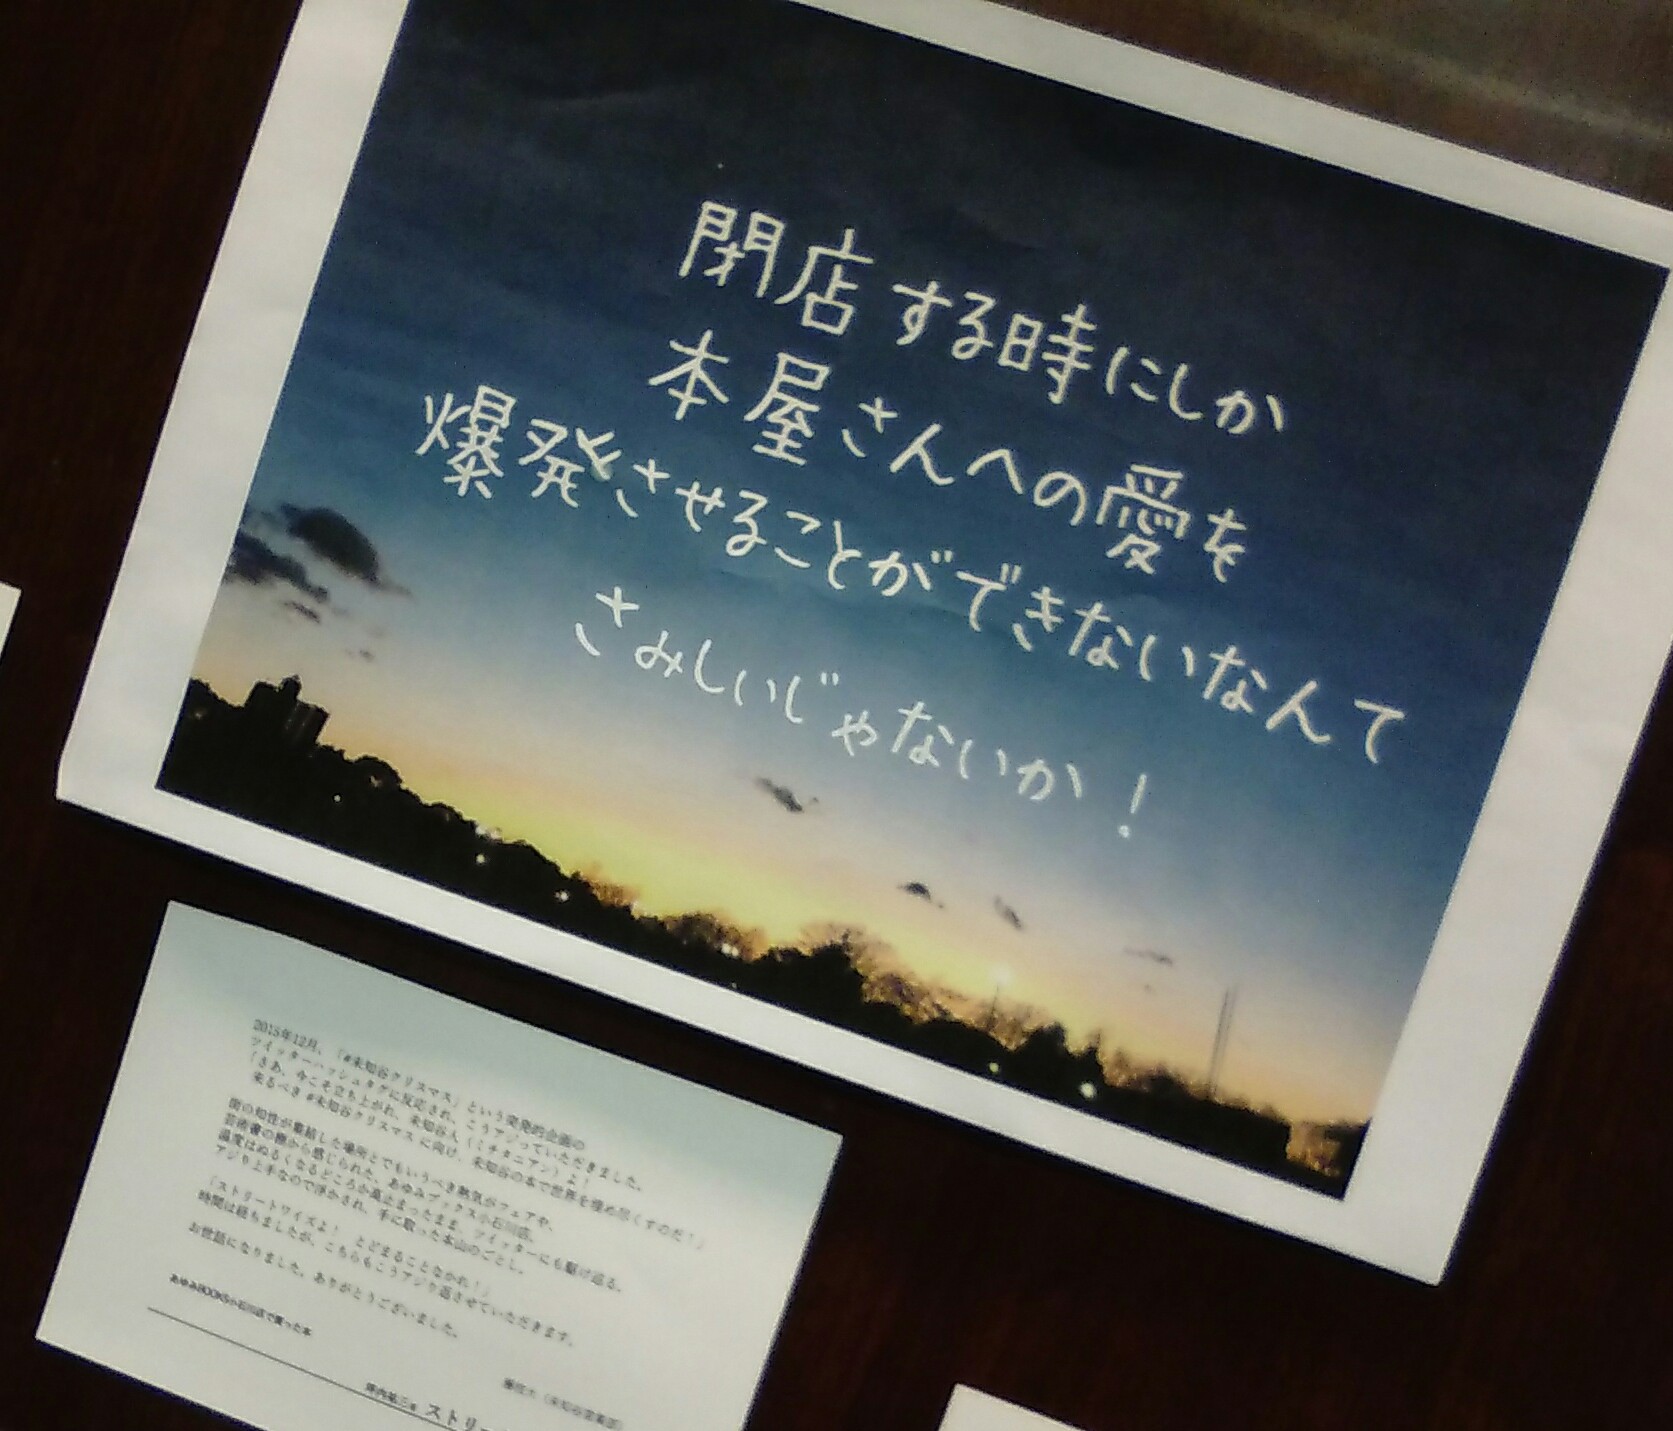 閉店する時にしか
本屋さんへの愛を
爆発させることができないなんて
さみしいじゃないか！
2015年12月、「#未知谷クリスマス」という突発的企画の
ツイッターハッシュタグに反応され、こうアジっていただきました。
「さあ、今こそ立ち上がれ、未知谷人（ミチタニアン）よ！
来るべき #未知谷クリスマス に向け、未知谷の本で世界を埋め尽くすのだ！」
街の知性が集結した場所とでもいうべき熱気がフェアや、
芸術書の棚から感じられた、あゆみブックス小石川店。
温度はぬるくなるどころか高止まったまま、ツイッターにも駆け巡る。
アジり上手なので浮かされ、手に取った本山のごとし。
「ストリートワイズよ！ とどまることなかれ！」
時間は経ちましたが、こちらもこうアジり返させていただきます。
お世話になりました。ありがとうございました。
（未知谷営業部）
あゆみBOOKS小石川店で買った本
坪内祐三著 ストリー